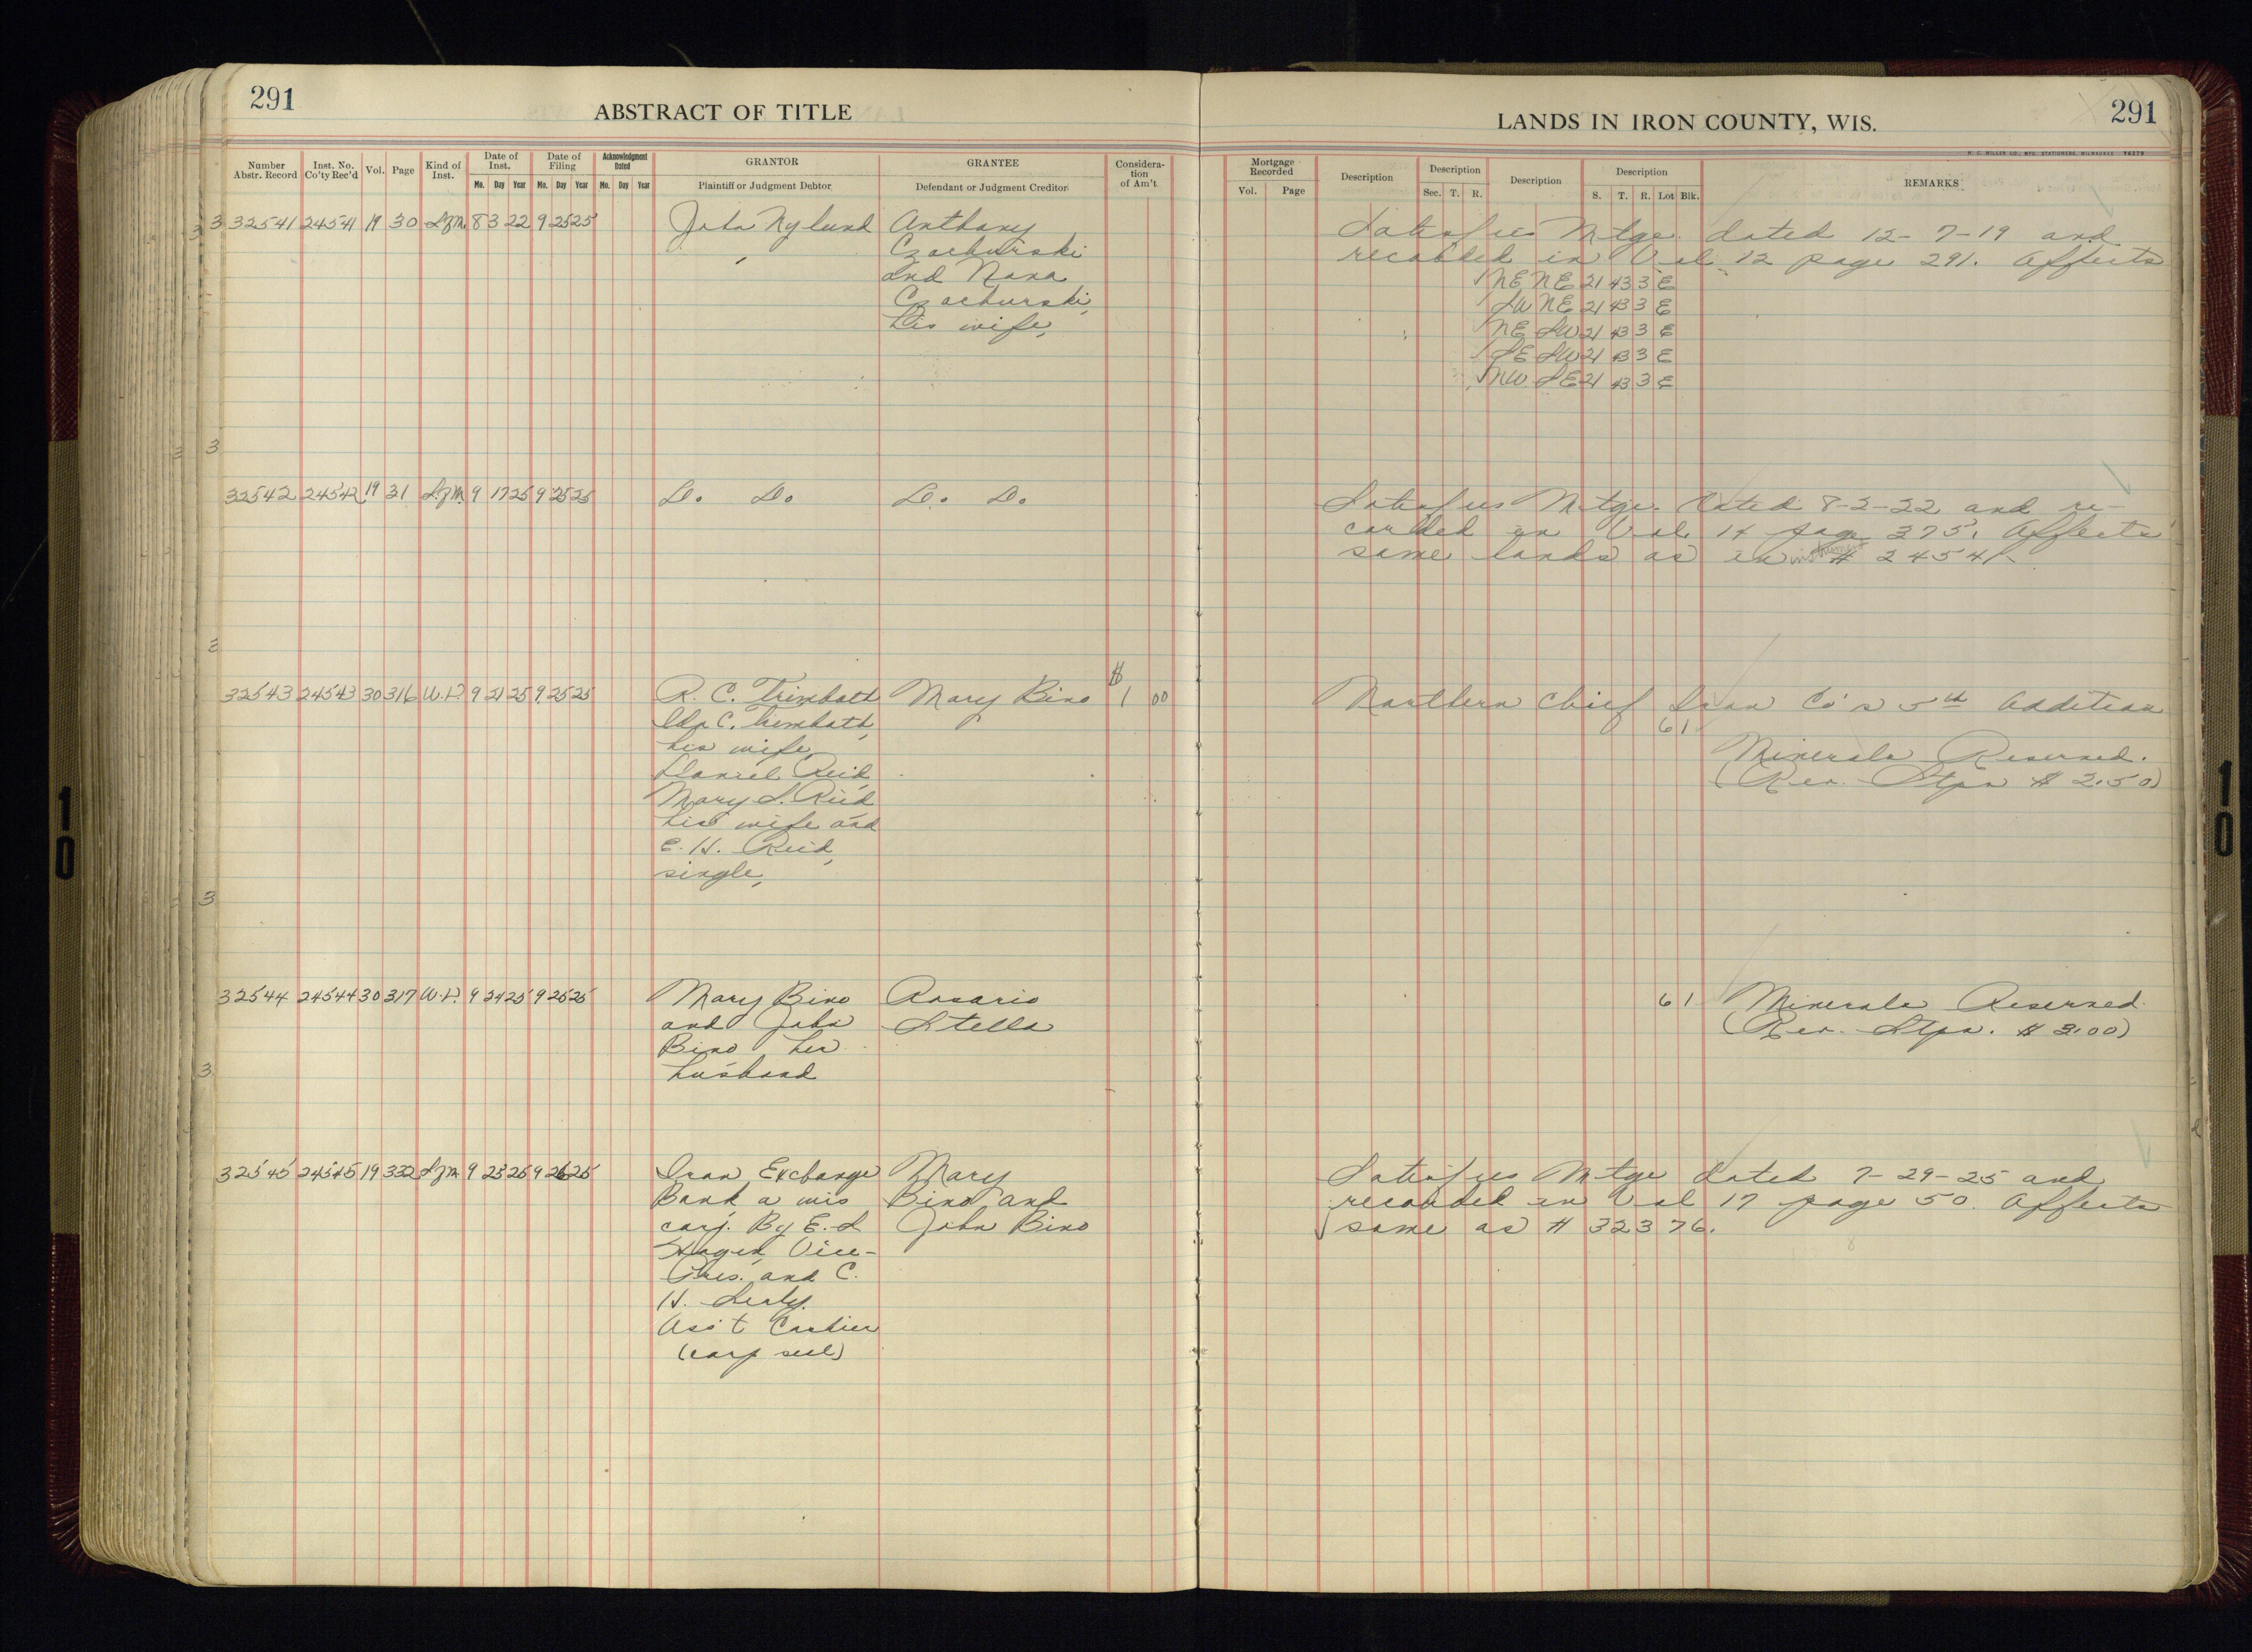 291
ABSTRACT OF TITLE
Number Abstr. Record
Inst. No. Co'ty Rec'd
Vol.
Page
Kind of Inst.
Date of Inst.
Mo. Day Year
Date of Filing
Mo. Day Year
Acknowledgment Dated
Mo. Day Year
GRANTOR
Plaintiff or Judgment Debtor
GRANTEE
Defendant or Judgment Creditor
Considera-
tion
of Am't
32541 24541 19 30 S.f.M. 8 3 22 9 25 25 John Nylund Anthony
Czachurski
and Nana
Czachurski,
his wife,
32542 24542 19 31 S.f.M. 9 17 25 9 25 25 Do. Do Do. Do.
$
32543 24543 30 316 W.D. 9 21 25 9 25 25 R. C. Trimbath Mary Bino 1 00
Ida C. Trembath,
his wife
Daniel Reid,
Mary S. Reid
his wife and
E. H. Reid,
single,
32544 24544 30 317 W.D. 9 24 25 9 25 25 Mary Bino Rosario
and John Stella
Bino her
husband
32545 24545 19 332 S.f.M. 9 25 25 9 26 25 Iron Exchange Mary
Bank a wis Bino and
corp. By E. S. John Bino
Vice-
Pres. and C.
H.
Ass't Cashier
(corp seal)
291
LANDS IN IRON COUNTY, WIS.
H. C. MILLER CO., MFG. STATIONERS, MILWAUKEE Y6279
Mortgage Recorded
Vol. Page
Description
Description
Sec. T. R.
Description
Description
S. T. R. Lot Blk.
REMARKS
Satisfies Mtge. dated 12-7-19 and
recorded in Vol 12 page 291. Affects
NE NE 21 43 3 E
SW NE 21 43 3 E
NE SW 21 43 3 E
SE SW 21 43 3 E
NW SE 21 43 3 E
Satisfies Mtge. dated 8-3-22 and re-
corded in Vol. 14 page 375. Affects
same lands as in instrument # 24541
Northern Chief Iron Co's 5th Addition
6 1
Minerals Reserved.
(Rev. Stps $ 2.50)
6 1 Minerals Reserved.
(Rev. Stps. $ 3.00)
Satisfies Mtge dated 7-29-25 and
recorded in Vol 17 page 50. Affects
same as # 32376.